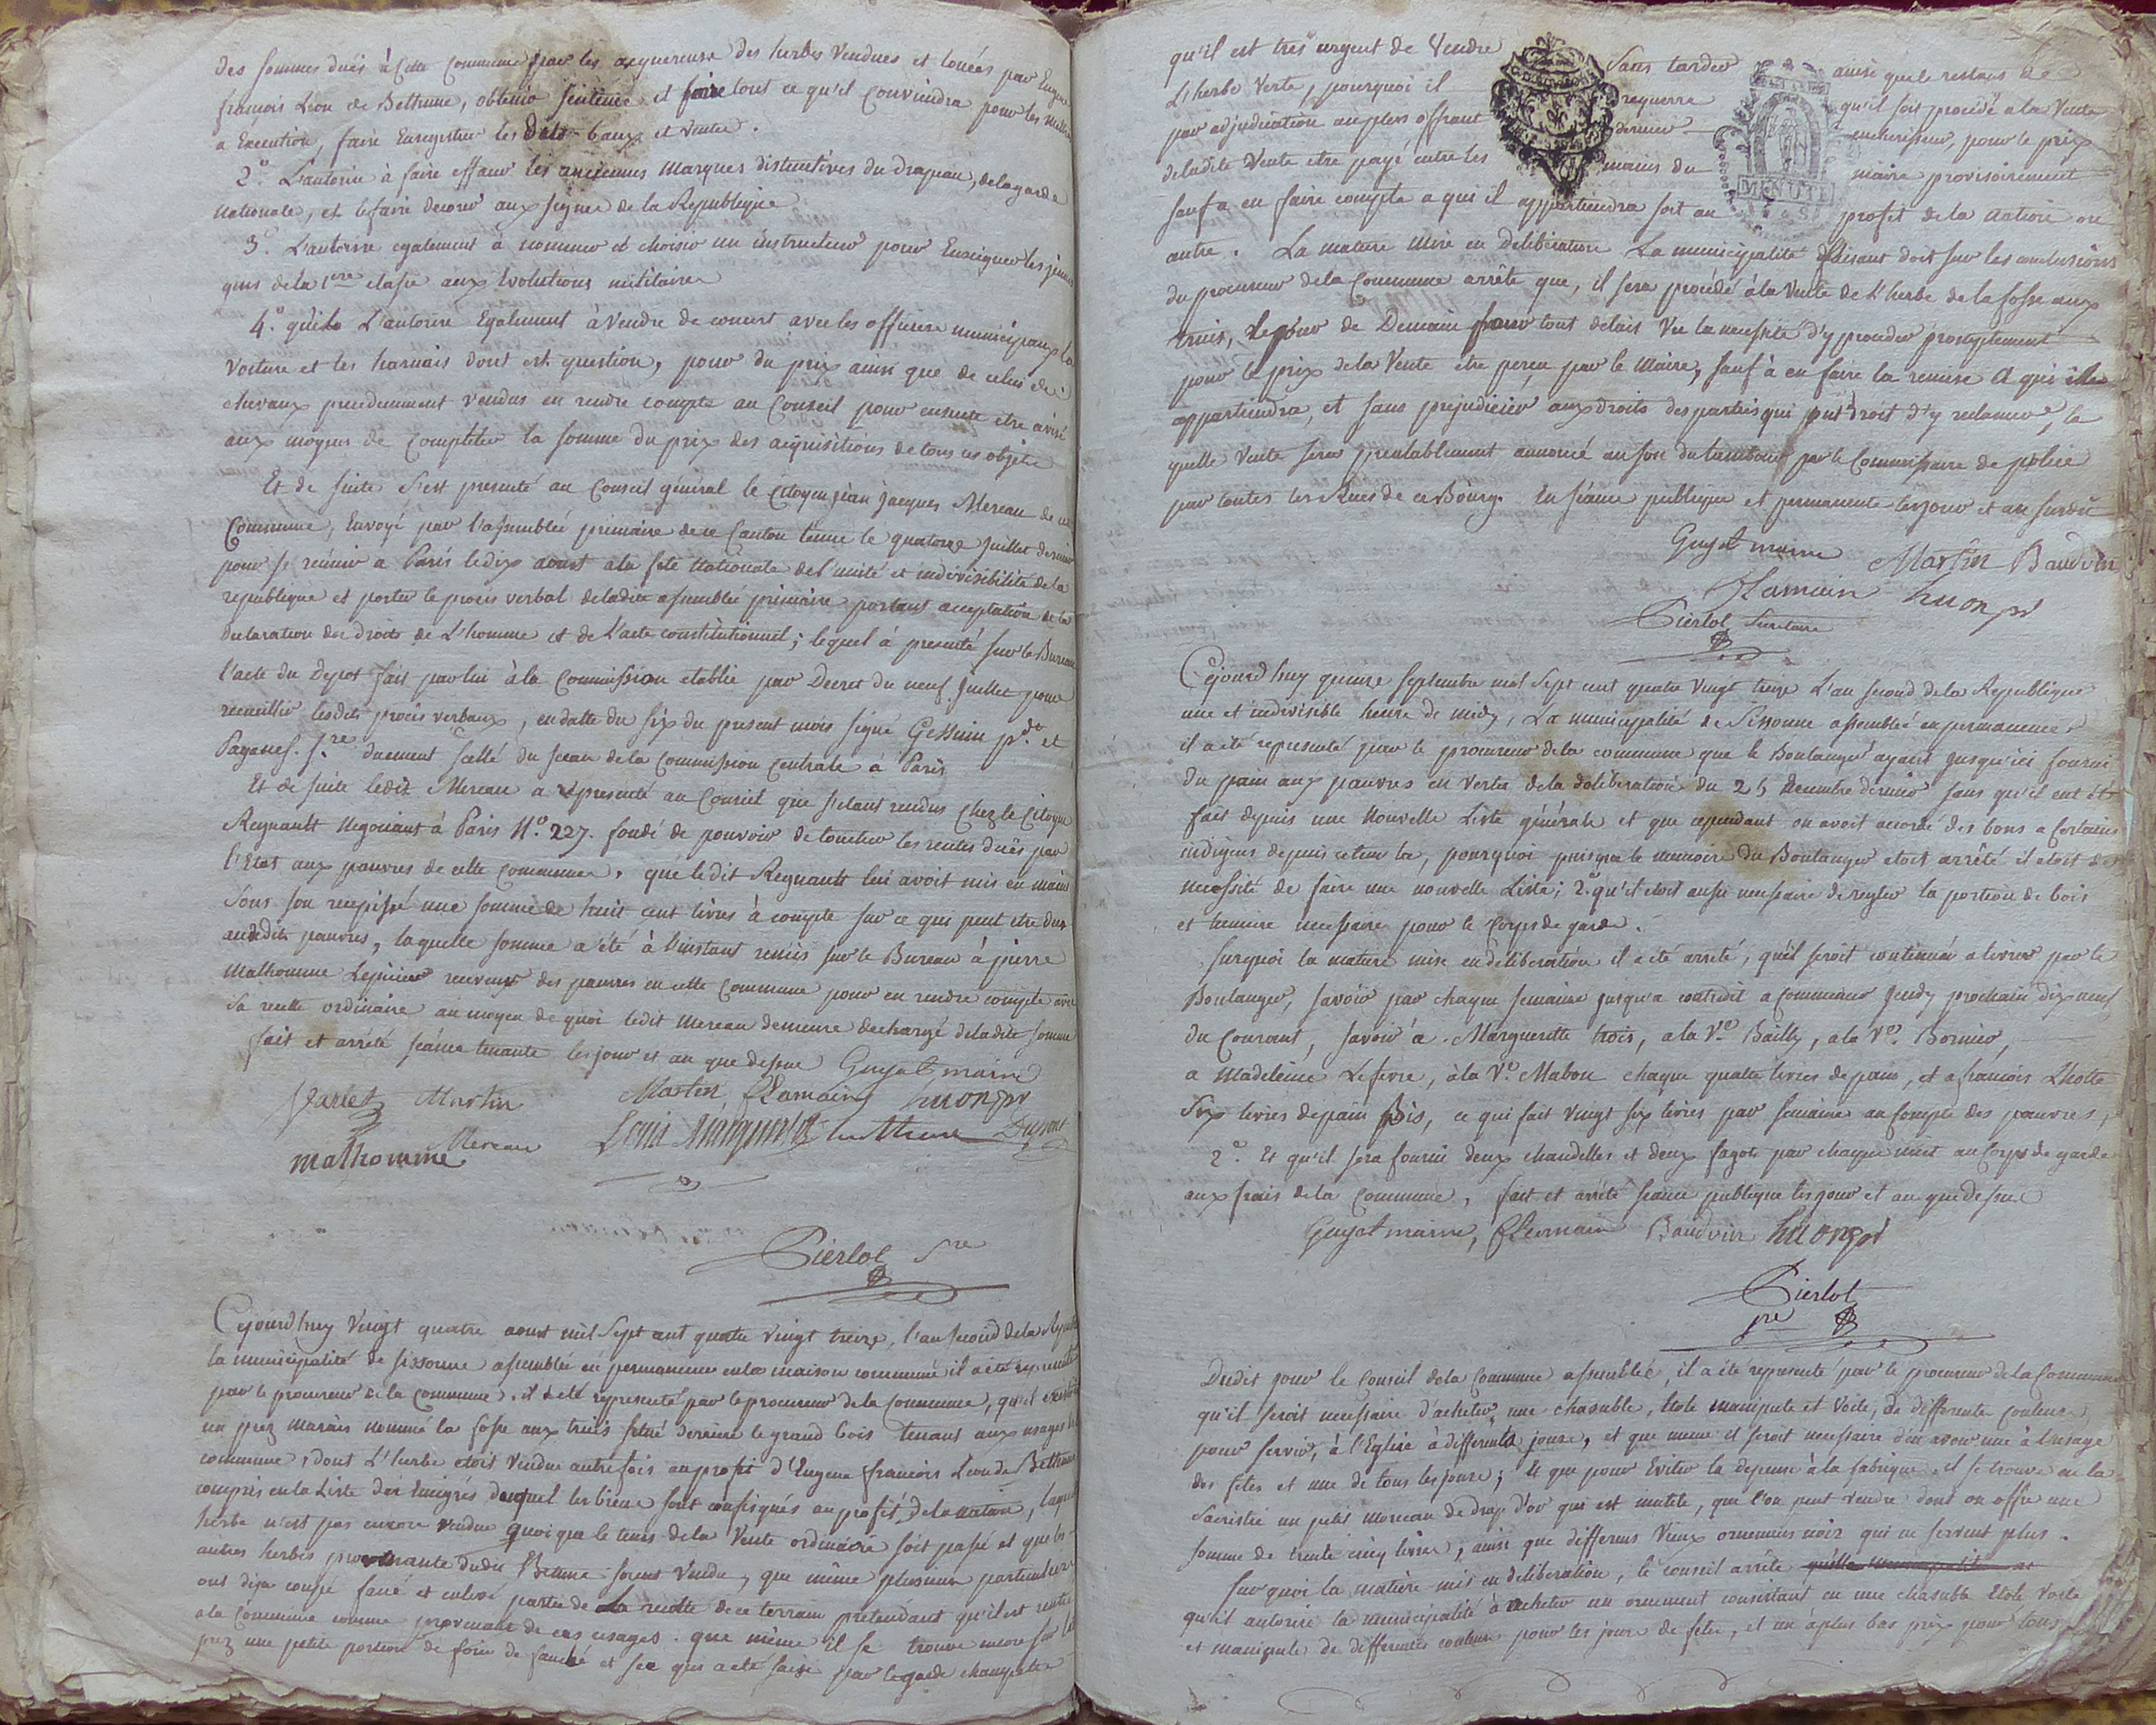 des sommes dués à Cette Commune par les acquereurs des herbes Vendues et louées par Eugene
francois Leon de Bethune, obtenir sentence et faire tout ce qu'il Conviendra pour les mettre
a Execution, faire Enregistrer les dits baux et ventes.
2.° L'autorise à faire effacer les anciennes Marques distinctives du Drapeau, de la garde
Nationale, et le faire decorer aux signes de la Republique
3.° L'autorise egalement à nommer et choisir un instructeur pour Enseigner les jeunes
gens de la 1ere classe aux Evolutions militaires
4.° qu'il L'autorise Egalement à Vendre de concert avec les officiers municipaux la
Voiture et les harnais dont est question, pour du prix ainsi que de celui des
chevaux precedemment Vendus en rendre compte au Conseil pour ensuite etre avisé
aux moyens de Completter la somme du prix des acquisitions de tous ces objets
Et de suite s'est presenté au Conseil général le Citoyen jean jacques Mereau de cette
Commune, Envoyé par l'assemblée primaire de ce Canton tenue le quatorze juillet dernier
pour se réunir a Paris le dix aoust a la fete Nationale de l'unité et indivisibilité de la
republique et porter le procès verbal de ladite assemblée primaire portant acceptation de la
declaration des droits de L'homme et de l'acte constitutionnel; lequel à presenté sur le Bureau
l'acte du depot fait par lui à la Commission etablie par Decret du neuf Juillet pour
recueillir lesdits procès verbaux, en datte du six du present mois signé Gossuin pdt et
Paganel. sre. duement scellé du sceau de la Commission Centrale à Paris
Et de suite ledit Mereau a representé au Conseil que s'etant rendus Chez le Citoyen
Regnault Negociant à Paris N.° 227. fondé de pouvoir de toucher les rentes dués par
l'Etat aux pauvres de cette Commune, que ledit Regnault lui avoit mis en mains
sous son recepissé une somme de huit cent livres à compte sur ce qui peut etre du
auxdits pauvres, laquelle somme a été à l'instant remis sur le Bureau à pierre
Malhomme Lepicier receveur des pauvres en cette Commune pour en rendre compte avec
sa recette ordinaire au moyen de quoi ledit Mereau demeure dechargé de ladite somme
fait et arrété séance tenante les jour et an que dessus Guyot maire
Martin Martin Flamain huon pr
malhomme Mereau Louis Dupont
Pierlot Sre
Cejourd'huy Vingt quatre aoust mil Sept cent quatre Vingt treize, l'an second de la Republ
la municipalité de sissonne assemblée en permanence en la maison commune il a été representé
par le procureur de la Commune. il a été representé par le procureur de la Commune, qu'il existe
un prez Marais nommé la fosse aux truis situé derriere le grand bois tenant aux usages de la
commune, dont L'herbe etoit Vendue autrefois au profit d'Eugene francois Leon de Bethune
compris en la Liste des Emigrés duquel les biens sont confisqués au profit de la nation, laquelle
herbe n'est pas encore vendue quoique le tems de la Vente ordinaire soit passé et que les
autres herbes provenante dudit Bethune soient Vendues, que même plusieurs particuliers
ont deja coupé fané et enlevé partie de la recolte de ce terrein pretendant qu'il est rentré
a la Commune comme provenant de ces usages. que même il se trouve encore sur le
prez une petite portion de foin de fauché et sec qui a été saisi par le garde champetre
qu'il est tres urgent de Vendre Sans tarder ainsi que le restans de
L'herbe Verte, pourquoi il requerre qu'il soit procédé a la Vente
par adjudication au plus offrant dernier encherisseur, pour le prix
de ladite Vente etre payé entre les mains du maire provisoirement
MINUTE
sauf a en faire compte a qui il appartiendra soit au profit de la nation ou
autre. La matiere Mise en Deliberation La municipalité faisant droit sur les conclusions
du procureur de la Commune arrête que, il sera procédé à la Vente de L'herbe de la fosse aux
truis, le jour de Demain pour tout delais Vu la necessité d'y proceder promptement
pour le prix de la Vente etre perçu par le Maire, sauf à en faire la remise A qui il
appartiendra, et sans prejudicier aux droits des parties qui ont droit d'y reclamer, la
quelle Vente sera prealablement annoncé au son du tambour par le Commissaire de police
par toutes les Rues de ce Bourg. En séance publique et permanente les jour et an susdit
Guyot maire Martin Baudvin
Flamain huon pr
Pierlot Secretaire
Cejourd'huy quinze septembre mil Sept cent quatre Vingt treize L'an second de la Republique
une et indivisible heure de midy, La municipalité de Sissonne assemblée en permanence,
il a été representé par le procureur de la commune que le Boulanger ayant jusqu'ici fourni
du pain aux pauvres en Vertu de la deliberation du 25 decembre dernier sans qu'il eut été
fait depuis une Nouvelle Liste générale et que cependant on avoit accordé des bons a Certains
indigens depuis ce tems la, pourquoi puisque le memoire du Boulanger etoit arrêté il etoit de
necessité de faire une nouvelle Liste; 2.° qu'il etoit aussi necessaire de regler la portion de bois
et lumiere necessaire pour le Corps de garde.
surquoi la matiere mise en deliberation il a été arrété, qu'il seroit continué a livrer par le
Boulanger, savoir par chaque semaine jusqu'a contredit a Commencer Jeudy prochain dix neuf
du Courant, savoir a Marguerite trois, a la Ve. Bailly, a la Ve. Bornier,
a Madeleine Lefevre, à la Ve. Mabon chaque quatre livres de pain, et a francois Lhotte
six livres de pain Bis, ce qui fait Vingt six livres par semaine au Compte des pauvres,
2.° Et qu'il sera fourni deux chandelles et deux fagots par chaque nuit au Corps de garde
aux frais de la Commune, fait et arrété séance publique les jour et an que dessus
Guyot maire, Flamain Baudvin huon pr
Pierlot
sre
Dudit jour le Conseil de la Commune assemblé, il a été representé par le procureur de la Commune
qu'il seroit necessaire d'acheter une chasuble, Etole manipule et Voile, de differente Couleur
pour servir, à l'Eglise à differents jours, et que meme il seroit necessaire d'en avoir une à l'usage
des fetes et une de tous les jours; Et que pour Eviter la depense à la fabrique il se trouve en la
Sacristie un petit morceau de drap d'or qui est inutile, que l'on peut vendre dont on offre une
somme de trente cinq livres, ainsi que differens Vieux ornemens noir qui ne servent plus.
sur quoi la matière mis en deliberation, le conseil arrête
qu'il autorise la municipalité à acheter un ornement consistant en une chasuble Etole Voile
et manipule de differentes couleur pour les jours de fetes, et un à plus bas prix pour tous